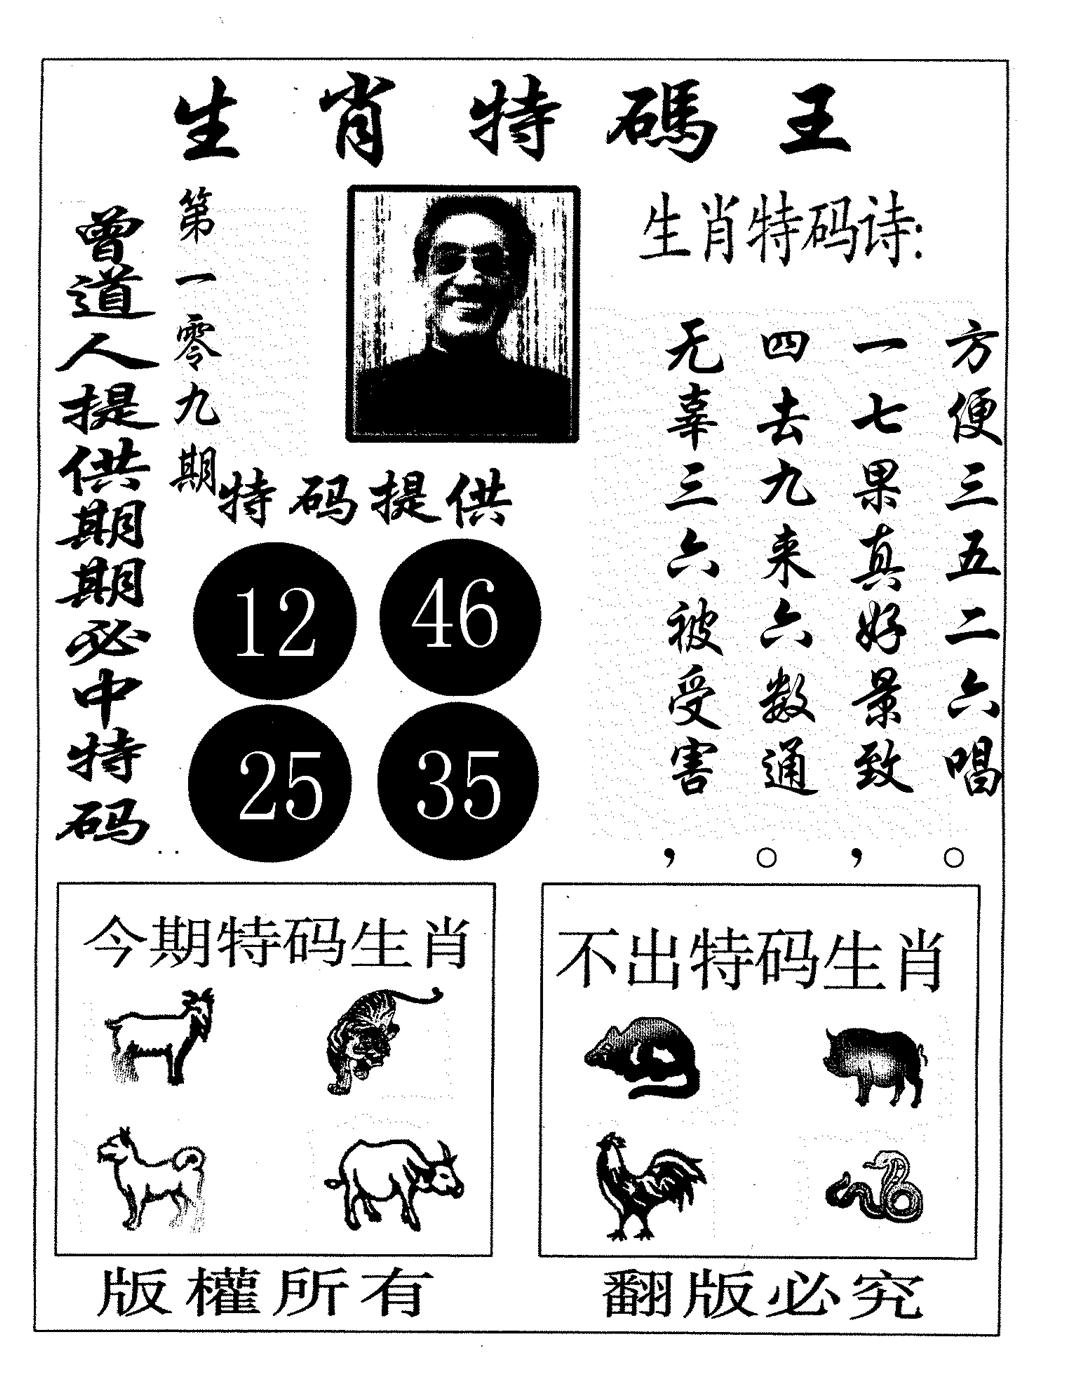 生肖特碼王
曾道人提供期期必中特码
第一零九期
生肖特码诗:
方便三五二六唱。
一七果真好景致，
四去九来六数通。
无辜三六被受害，
特码提供
12 46
25 35
今期特码生肖
不出特码生肖
版權所有
翻版必究